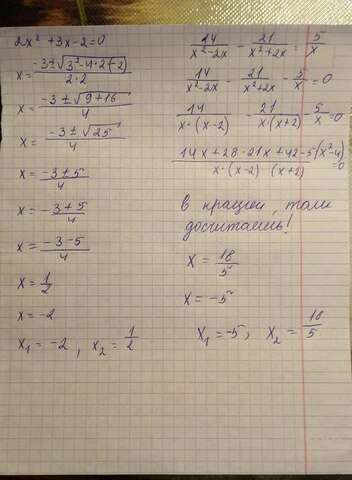 2x² + 3x - 2 = 0
x = -3±√3²-4·2(-2) / 2·2
x = -3±√9+16 / 4
x = -3±√25 / 4
x = -3±5 / 4
x = -3+5 / 4
x = -3-5 / 4
x = 1/2
x = -2
x₁ = -2, x₂ = 1/2
14/x²-2x - 21/x²+2x = 5/x
14/x²-2x - 21/x²+2x - 5/x = 0
14/x·(x-2) - 21/x·(x+2) - 5/x = 0
14x+28-21x+42-5(x²-4) / x·(x-2) (x+2) = 0
в крации, толи
досчитаешь!
x = 18/5
x = -5
x₁ = -5; x₂ = 18/5